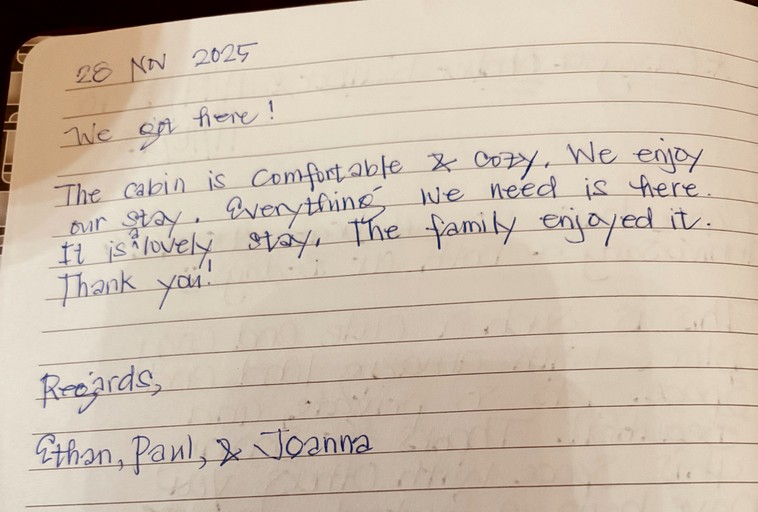 28 NOV 2025
We got here!
The cabin is comfortable & cozy. We enjoy
our stay. Everything we need is here.
It is a lovely stay. The family enjoyed it.
Thank you!
Regards,
Ethan, Paul, & Joanna